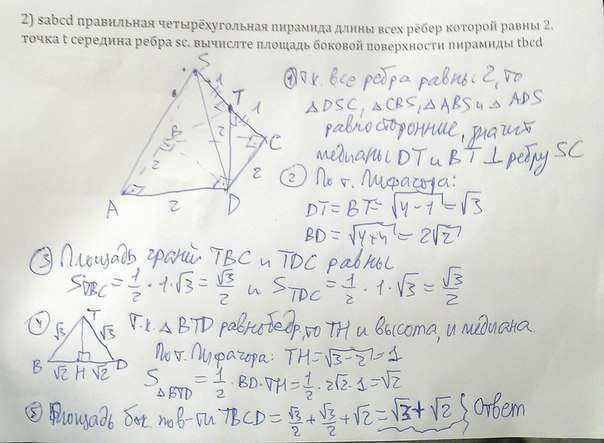 2) sabcd правильная четырёхугольная пирамида длины всех рёбер которой равны 2.
точка t середина ребра sc. вычислте площадь боковой поверхности пирамиды tbcd
S
1
T
1
B
2
2
2
C
2
A
2
D
① Т.к. все ребра равны 2, то
△DSC, △CBS, △ABS и △ADS
равносторонние, значит
медианы DT и BT ⊥ ребру SC
② По т. Пифагора:
DT = BT = √4-1 = √3
BD = √4+4 = 2√2
③ Площадь граней TBC и TDC равны
S TBC = 1/2 · 1 · √3 = √3/2 и S TDC = 1/2 · 1 · √3 = √3/2
④ T
√3 √3
B √2 H √2 D
Т.к. △BTD равнобедр, то TH и высота, и медиана.
По т. Пифагора: TH = √3-2 = 1
S △BTD = 1/2 · BD · TH = 1/2 · 2√2 · 1 = √2
⑤ Площадь бок пов-ти TBCD = √3/2 + √3/2 + √2 = √3 + √2 } Ответ